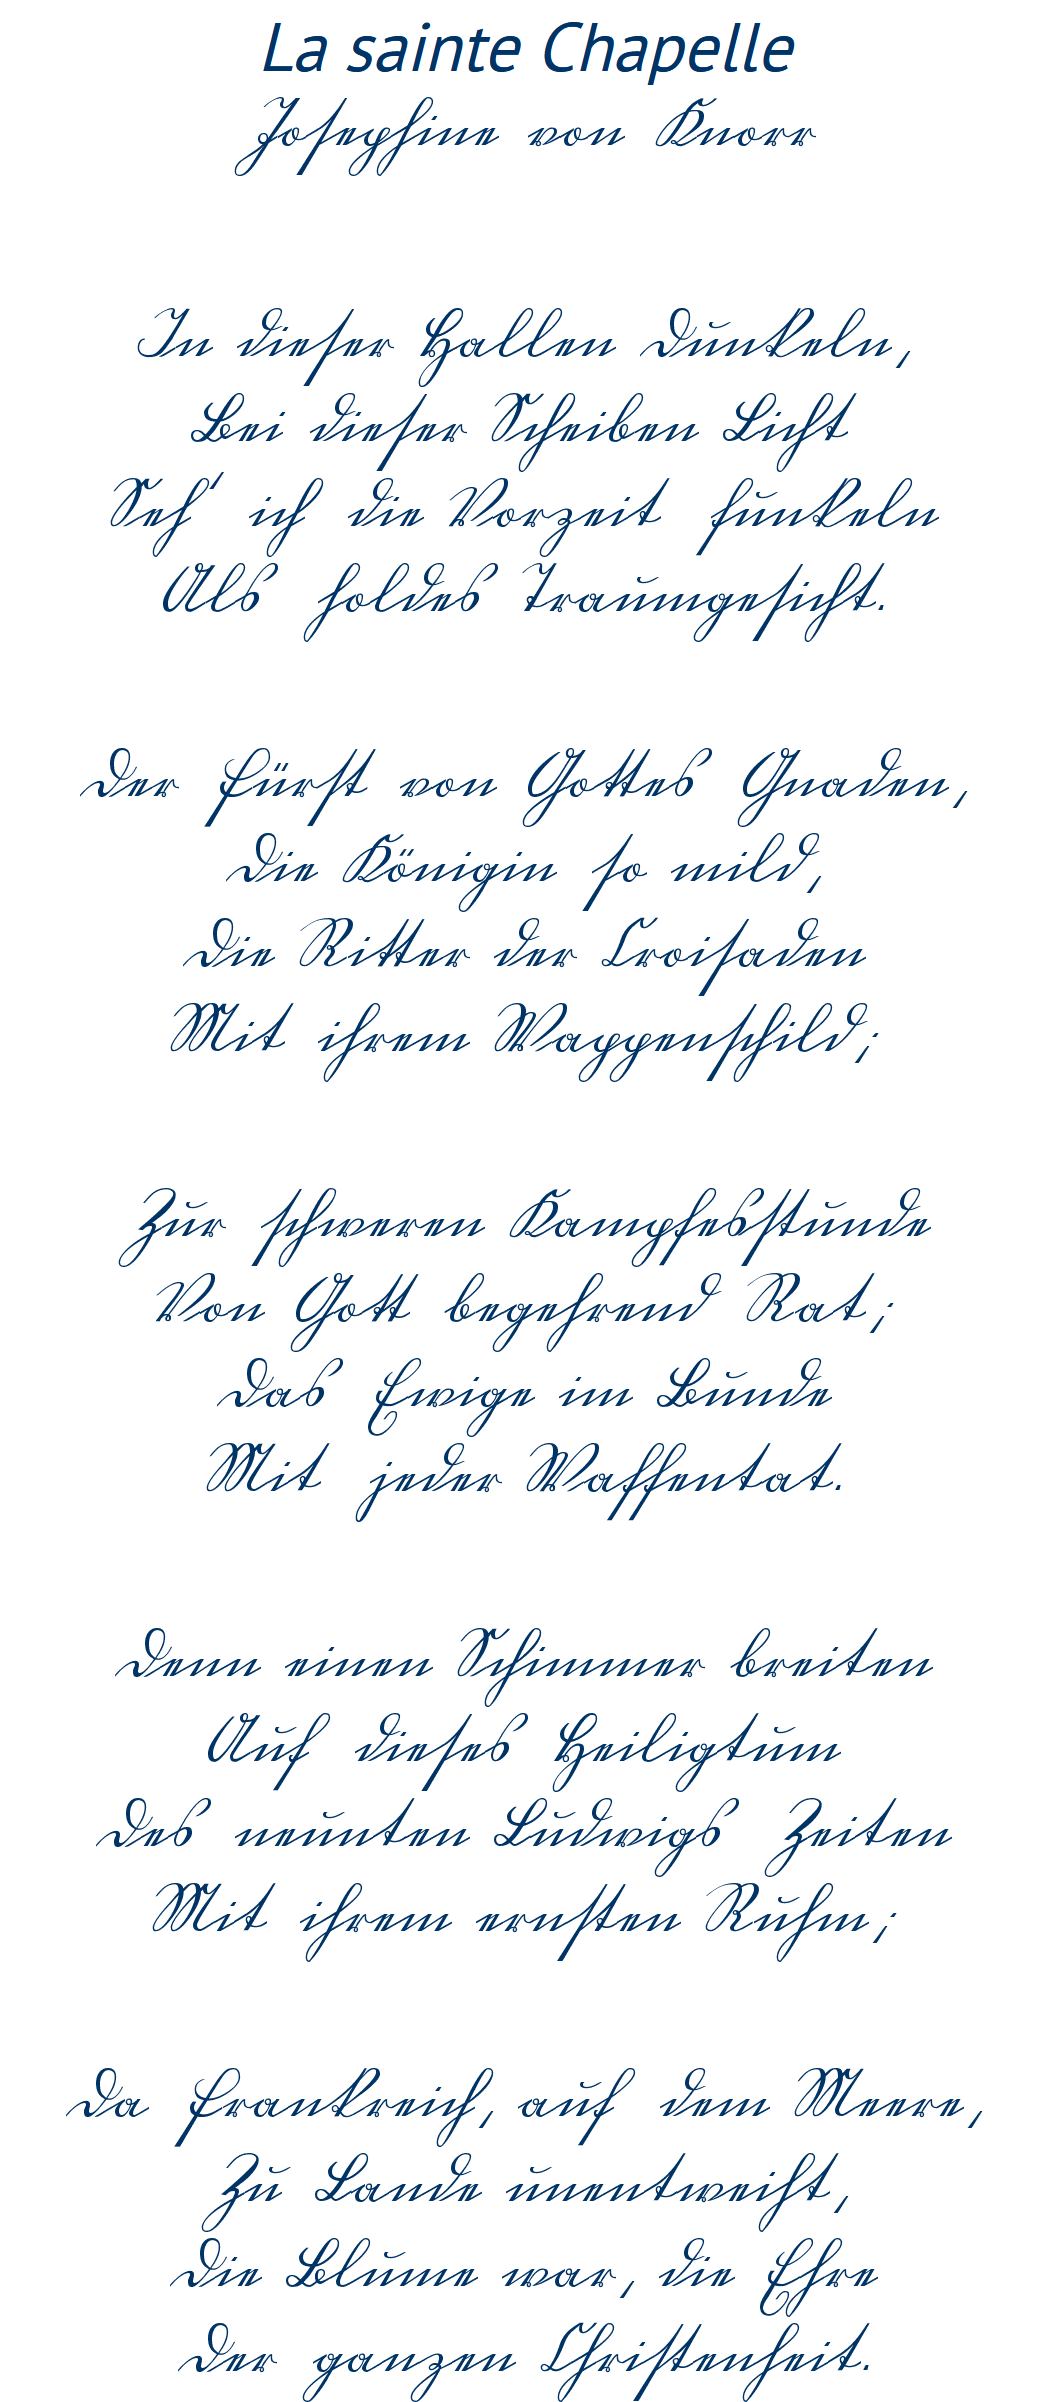 La sainte Chapelle
Josephine von Knorr
In dieser Hallen Dunkeln,
Bei dieser Scheiben Licht
Seh' ich die Vorzeit funkeln
Als holdes Traumgesicht.
Der Fürst von Gottes Gnaden,
Die Königin so mild,
Die Ritter der Croisaden
Mit ihrem Wappenschild;
Zur schweren Kampfesstunde
Von Gott begehrend Rat;
Das Ewige im Bunde
Mit jeder Waffentat.
Denn einen Schimmer breiten
Auf dieses Heiligtum
Des neunten Ludwigs Zeiten
Mit ihrem ernsten Ruhm;
Da Frankreich, auf dem Meere,
Zu Lande unentweiht,
Die Blume war, die Ehre
Der ganzen Christenheit.